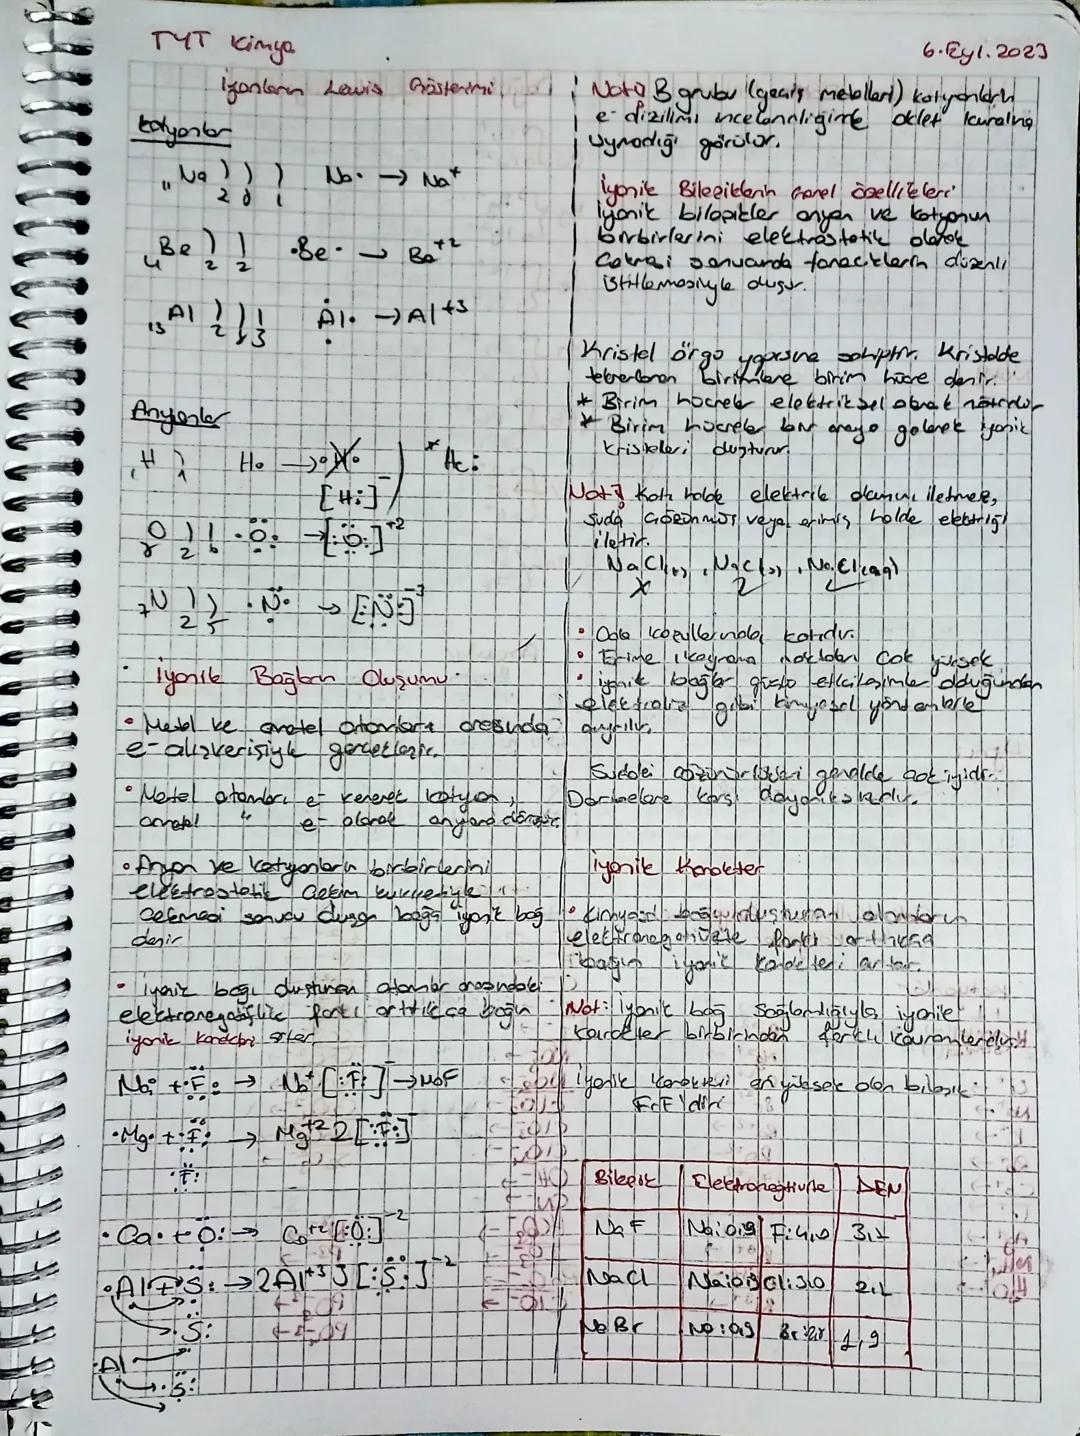 TYT Kimya
6.Eyl.2023
İyonların Lewis Gösterimi
Katyonlar
₁₁Na ) ) ) Na· → Na⁺
2 8 1
₄Be ) ) ·Be· → Be⁺²
2 2
₁₃Al ) ) ) Al· → Al⁺³
2 8 3
Anyonlar
₁H ) H· → [H:]⁻ * He:
1
₈O ) ) ·O: → [:O:]⁺²
2 6
₇N ) ) ·N· → [:N:]⁻³
2 5
· İyonik Bağların Oluşumu
• Metal ve ametal atomları arasında
e- alışverişiyle gerçekleşir.
• Metal atomları e- vererek katyon,
ametal " e- alarak anyona dönüşür.
• Anyon ve katyonların birbirlerini
elektrostatik çekim kuvvetiyle
çekmesi sonucu oluşan bağa iyonik bağ
denir
• İyonik bağı oluşturan atomlar arasındaki
elektronegatiflik farkı arttıkça bağın
iyonik karakteri artar.
Na· + ·F: → Na⁺ [:F:]⁻ → NaF
·Mg· + ·F: → Mg⁺² 2[:F:]⁻
·F:
·Ca· + O: → Ca⁺² [:O:]⁻²
·Al + S: → 2Al⁺³ 3[:S:]⁻²
·S:
·Al
·S:
Not: B grubu (geçiş metalleri) katyonların
e- dizilimi incelendiğinde oktet kuralına
uymadığı görülür.
İyonik Bileşiklerin Genel özellikleri
İyonik bileşikler anyon ve katyonun
birbirlerini elektrostatik olarak
çekmesi sonucunda taneciklerin düzenli
istiflemesiyle oluşur.
Kristal örgü yapısına sahiptir. Kristalde
tekrarlanan birimlere birim hücre denir.
* Birim hücreler elektriksel olarak nötrdür
* Birim hücreler bir araya gelerek iyonik
kristalleri oluşturur.
Not: Katı halde elektrik akımını iletmez,
suda çözünmüş veya erimiş halde elektriği
iletir.
NaCl(k), NaCl(s), NaCl(aq)
• Oda koşullarında katıdır.
• Erime, kaynama noktaları çok yüksek
• iyonik bağlar güçlü etkileşimler olduğundan
elektroliz gibi kimyasal yöntemlerle
ayrılır.
Sudaki çözünürlükleri genelde çok iyidir.
Darbelere karşı dayanıksızdır.
İyonik Karakter
• Kimyasal bağı oluşturan atomların
elektronegatiflik farkı arttıkça
bağın iyonik karakteri artar.
Not: İyonik bağ sağlamlığıyla iyonik
karakter birbirinden farklı kavramlardır.
İyonik karakteri en yüksek olan bileşik
FrF'dir
Bileşik Elektronegatiflik ΔEN
NaF Na:0,9 F:4,0 3,1
NaCl Na:0,9 Cl:3,0 2,1
NaBr Na:0,9 Br:2,8 1,9